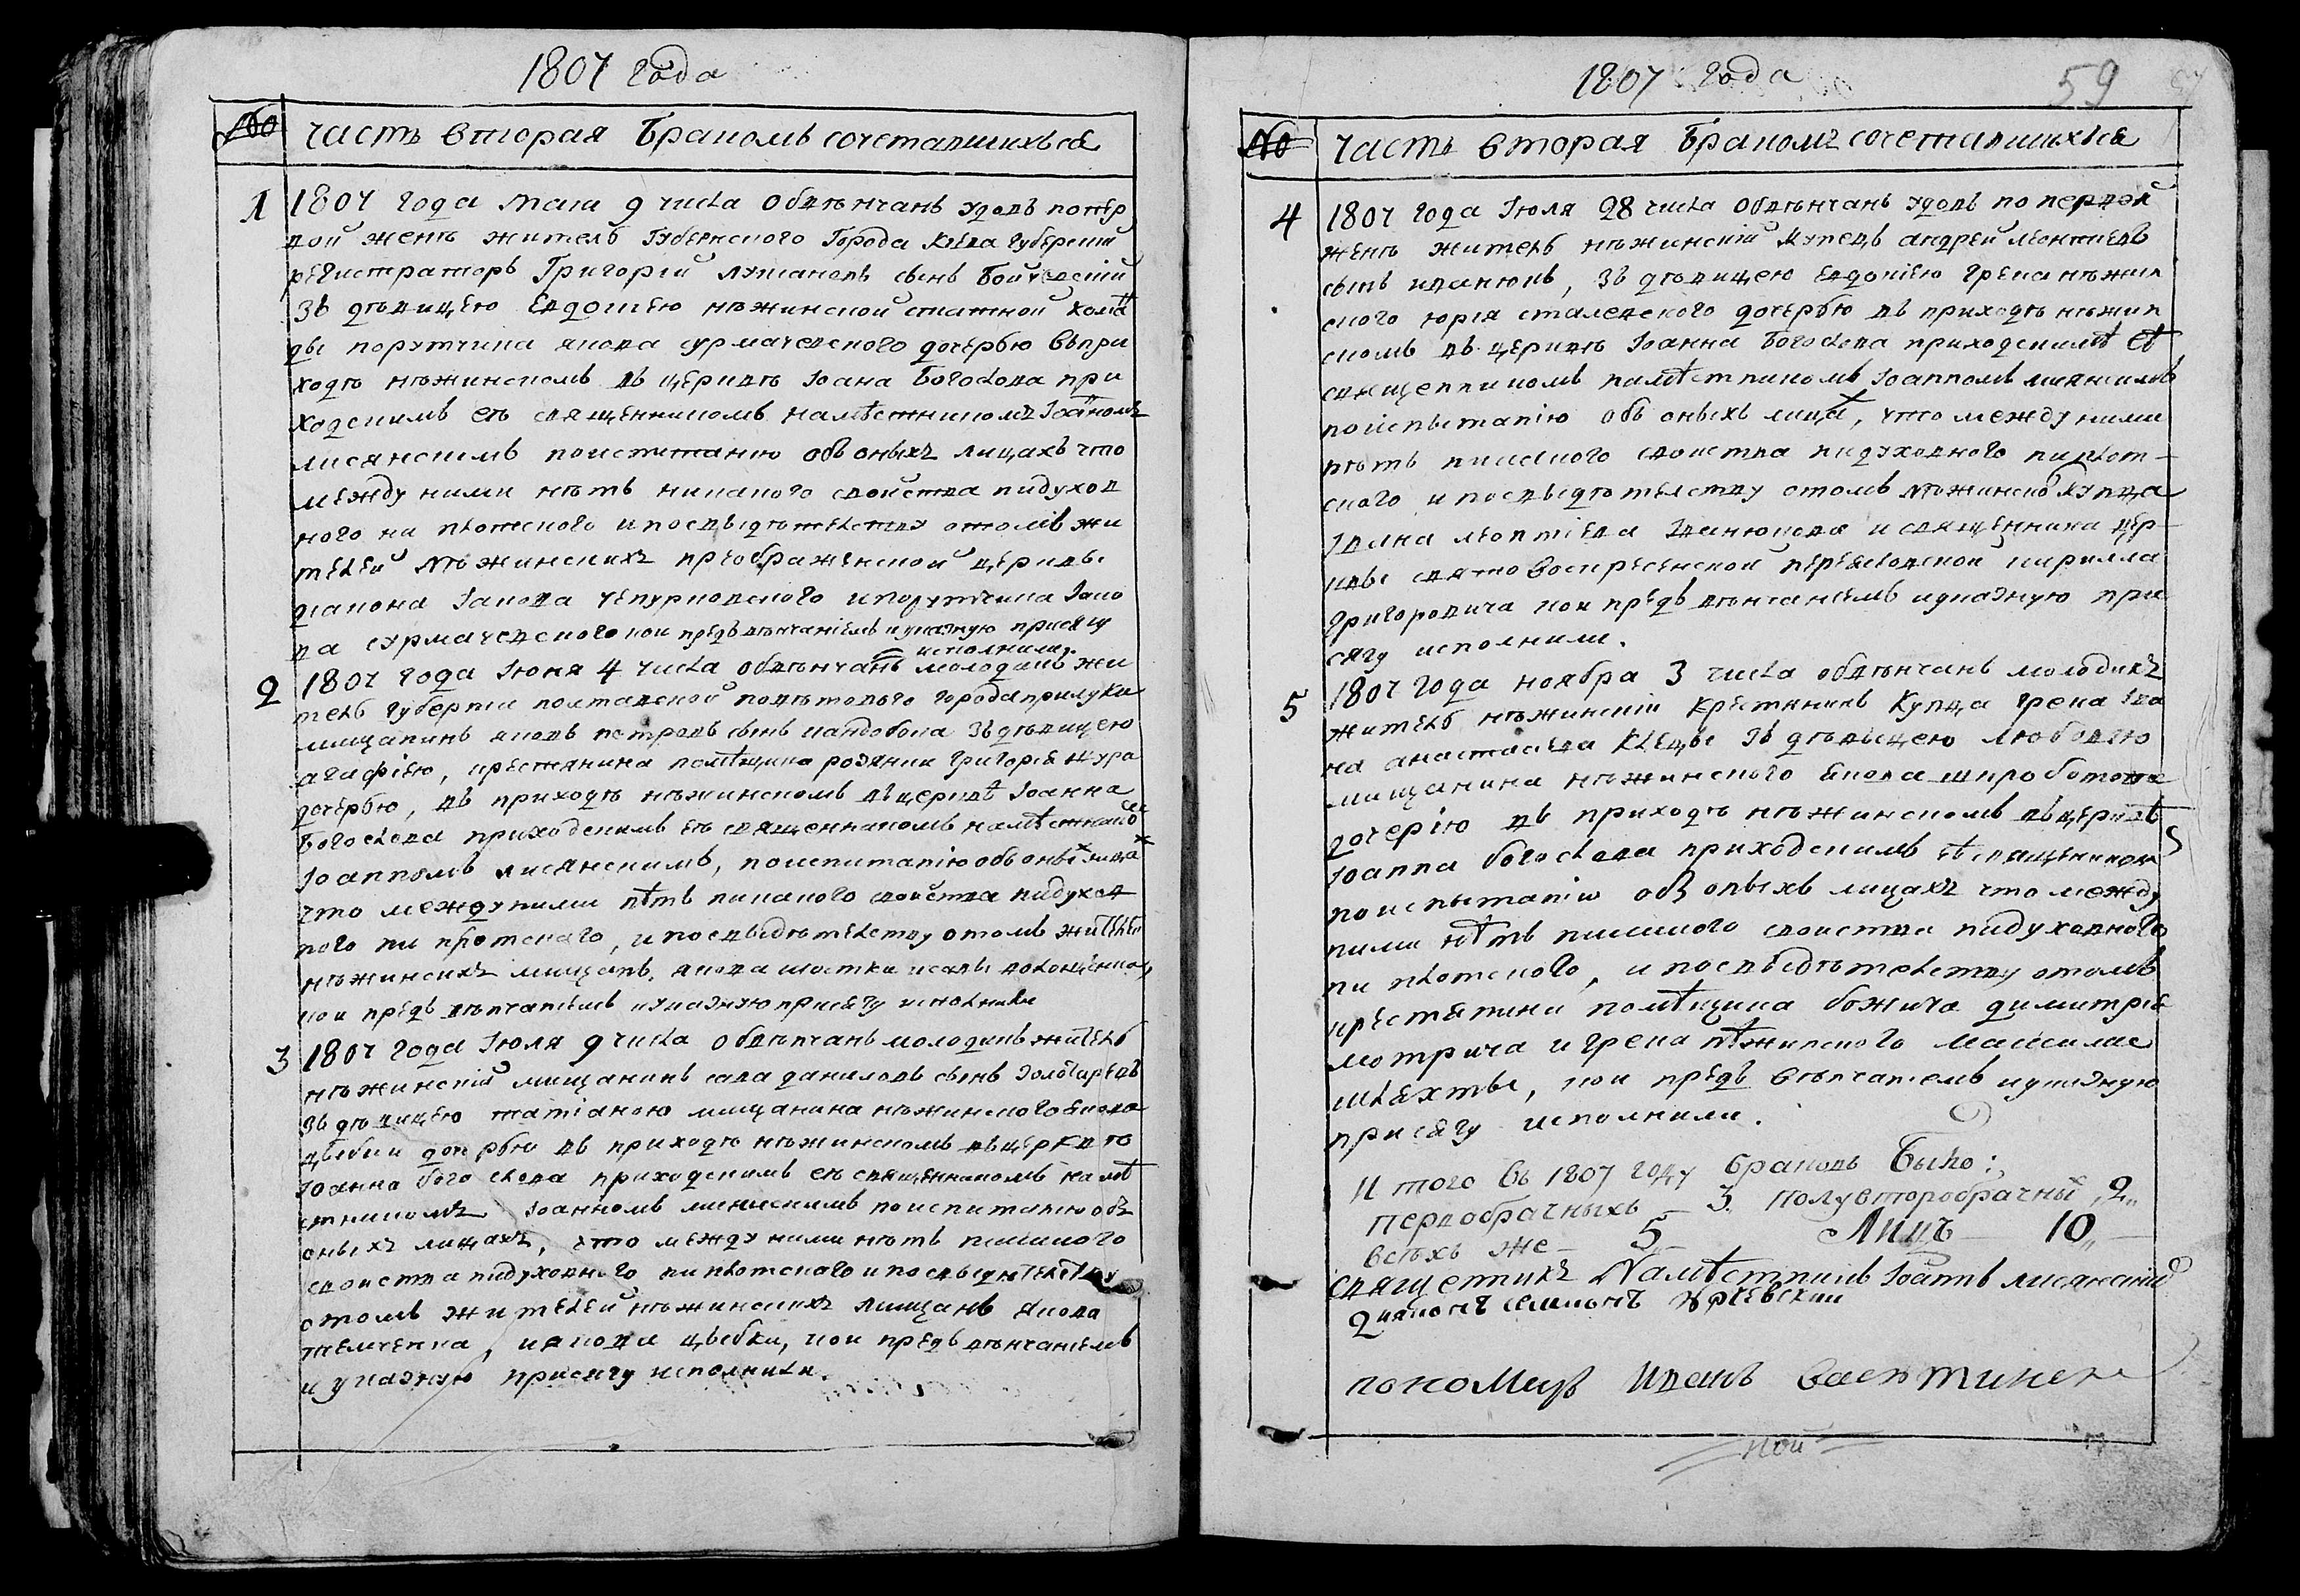 1807 года
№ часть вторая Бракомъ сочетавшихся
1 1807 года маія 9 числа обвѣнчанъ удовъ попер
вой женѣ житель Губернского Города Кіева губерскій
регистраторъ Григорій сынъ
зъ дѣвицею Евдокіею нѣжинской статной коман
ды порутчика якова сурмачевского дочерью въ при
ходѣ нѣжинскомъ въ церквѣ Іоана Богослова при
ходскимъ ея священникомъ намѣстникомъ Іоанномъ
лисянскимъ поиспитанію объ оныхъ лицахъ что
между ними нѣтъ никакого свойства ни духов
ного ни плотского и по свыдѣтелству отомъ жи
телей нѣжинскихъ преображенской церквы
діакона Іакова чепурковского и порутчика Іако
ва сурмачевского кои предъ вѣнчаніемъ и указную присягу
исполнили
2 1807 года Іюня 4 числа обвѣнчанъ молодикъ жи
тель губерніи полтавской повѣтового города прилуки
мищанинъ яковъ петровъ сынъ зъ дѣвицею
агафіею, крестянина помѣщика григорія жура
дочерью, въ приходѣ нѣжинскомъ въ церквѣ Іоанна
Богослова приходскимъ ея священникомъ намѣстнико
Іоанномъ лисянскимъ, поиспитанію объ оныхъ лица
что между ними нѣтъ никакого свойства ни духов
ного ни плотского, и по свыдѣтелству отомъ жителей
нѣжинскихъ мищанъ, якова шостки и савы
кои предъ вѣнчаніемъ и указную присягу исполнили
3 1807 года Іюля 9 числа обвѣнчанъ молодикъ житель
нѣжинскій мищанинъ сава даниловъ сынъ золотаревъ
зъ дѣвицею татіаною мищанина нѣжинского якова
цвѣбки дочерью въ приходѣ нѣжинскомъ въ церквѣ
Іоанна богослова приходскимъ ея священникомъ намѣ
стникомъ Іоанномъ лисянскимъ поиспитанію объ
оныхъ лицахъ, что между ними нѣтъ никакого
свойства ни духовного ни плотского и по свыдѣтелству
отомъ жителей нѣжинскихъ мищанъ якова
и якова цвѣбки, кои предъ вѣнчаніемъ
и указную присягу исполнили.
1807 года 59
№ часть вторая Бракомъ сочетавшихся
4 1807 года Іюля 28 числа обвѣнчанъ удовъ по первой
женѣ житель нѣжинскій купецъ андрей леонтіевъ
сынъ иванюкъ, зъ дѣвицею евдокіею грека нѣжин
ского юрія дочерью въ приходѣ нѣжин
скомъ въ церквѣ Іоанна Богослова приходскимъ ея
священникомъ намѣстникомъ Іоанномъ лисянскимъ
поиспытанію объ оныхъ лица, что между ними
нѣтъ никакого свойства ни духовного ни плот-
ского и по свыдѣтелству отомъ нѣжинско купца
Івана леонтіева Іванюкова и священника цер-
квы свято воскресенской переяславской кирилла
григоровича кои предъ вѣнчаніемъ и указную при
сягу исполнили.
5 1807 года ноября 3 числа обвѣнчанъ молодикъ
житель нѣжинскій крестникъ купца грека Іва
на анастасіева зъ дѣвыцею любовію
мищанина нѣжинского якова
дочерію въ приходѣ нѣжинскомъ въ церквѣ
Іоанна богослова приходскимъ ея священником
поиспытанію объ оныхъ лицахъ что между
ними нѣтъ никакого свойства ни духовного
ни плотского, и по свыдѣтелству отомъ
крестянина помѣщика божича димитрія
мотрича и грека нѣжинского
шляхты, кои предъ вѣнчаніемъ и указную
присягу исполнили.
Итого въ 1807 году браковъ Было:
первобрачныхъ — 3. полувторобрачных 2,,
всѣхъ же — 5,, — Лицъ — 10,, —
священникъ Намѣстникъ Іоаннъ лисянскій
пономаръ Иванъ